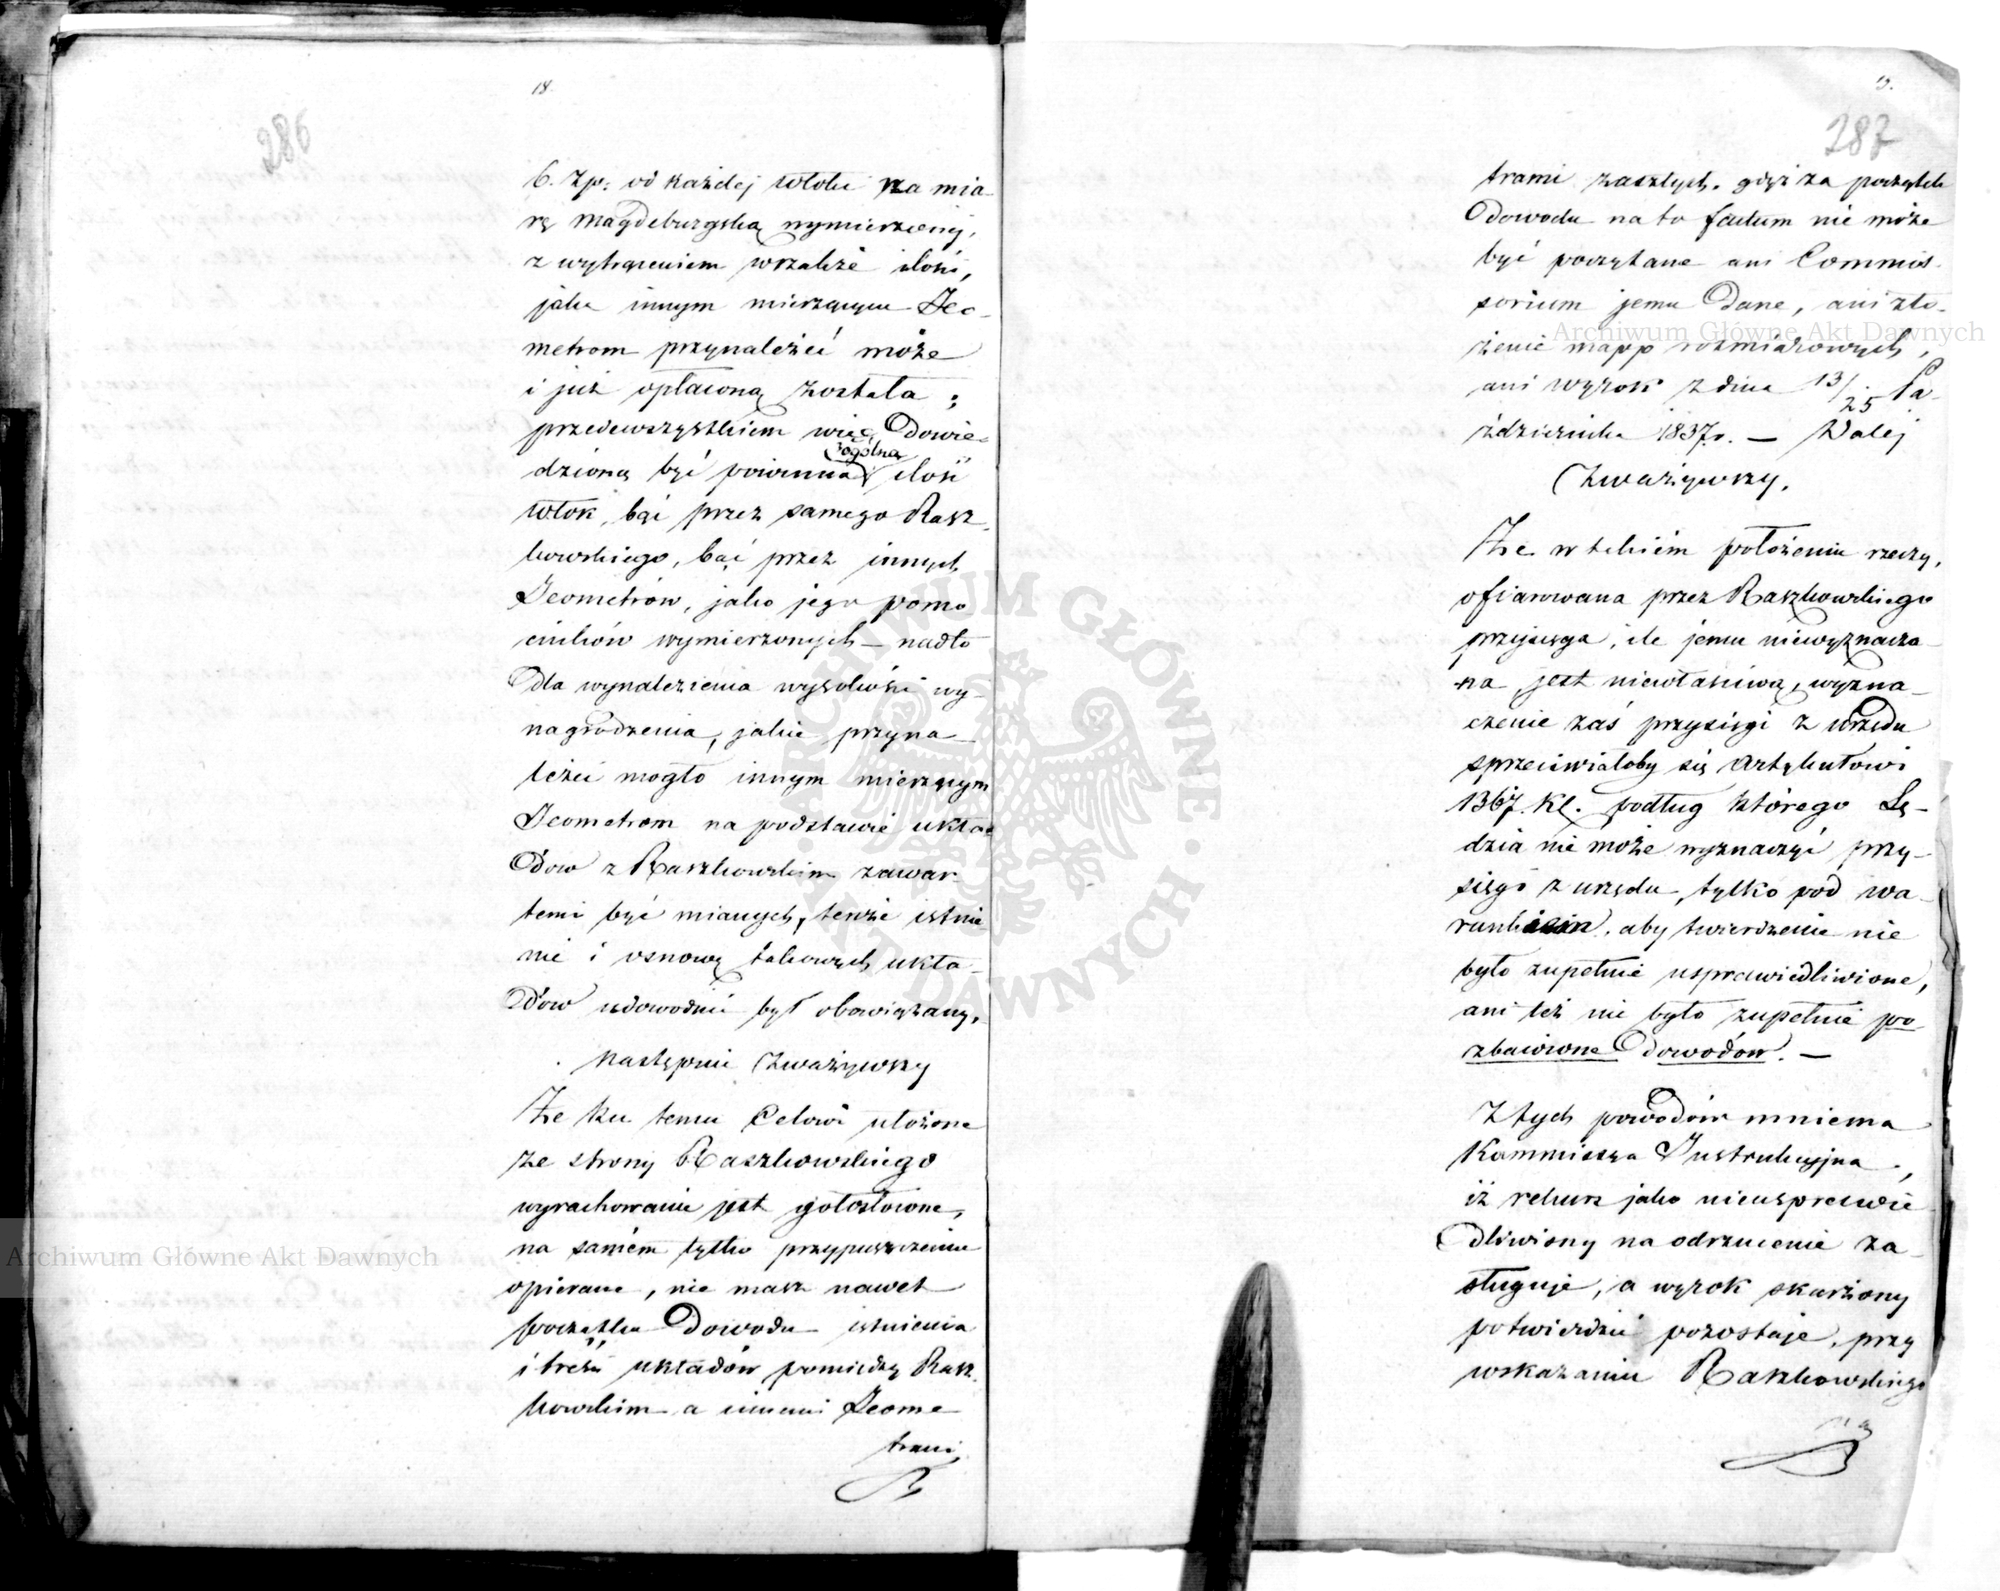 18
286
6. zp: od każdej włoki na mia-
rę Magdeburgską wymierzonej,
z wytrąceniem wszakże ilości,
jaka innym mierzącym Jeo-
metrom przynależeć może
i już opłaconą została;
przedewszystkiem więc dowie-
dzioną być powinna ogólna ilość
włok, bąć przez samego Rasz-
kowskiego, bąć przez innych
Jeometrów, jako jego pomo
cników wymierzonych – nadto
dla wynalezienia wysokości wy-
nagrodzenia, jakie przyna-
leżeć mogło innym mierzącym
Jeometrom na podstawie ukła-
dów z Raszkowskim zawar-
temi być mianych, tenże istnie
nie i osnowę takowych ukła-
dów udowodnić był obowiązany.
Następnie zważywszy
Że ku temu celowi ułożone
ze strony Raszkowskiego
wyrachowanie jest gołosłowne,
na samém tylko przypuszczeniu
opierane, nie masz nawet
początku dowodu istnienia
i treści układów pomiędzy Rasz-
kowskim a innemi Jeome
trami
19.
287
trami zaszłych, gdyż za początek
dowodu na to factum nie może
być poczytane ani Commis-
sorium jemu dane, ani zło-
żenie mapp rozmiarowych,
ani wyrok z dnia 13/25 Pa-
ździernika 1837 r. — Dalej
Zważywszy,
Że w takiém położeniu rzeczy,
ofiarowana przez Raszkowskiego
przysięga, ile jemu niewyznaczo-
na jest niewłaściwą, wyzna-
czenie zaś przysięgi z urzędu
sprzeciwiałoby się Artykułowi
1367. KC. podług którego Sę-
dzia nie może wyznaczyć przy-
sięgi z urzędu, tylko pod wa-
runkiem, aby twierdzenie nie
było zupełnie usprawiedliwione,
ani też nie było zupełnie po-
zbawione dowodów. —
Z tych powodów mniema
Kommissya Instrukcyjna,
iż rekurs jako nieusprawie
dliwiony na odrzucenie za-
sługuje, a wyrok skarżony
potwierdzić pozostaje, przy
wskazaniu Raszkowskiego
na
Archiwum Główne Akt Dawnych
Archiwum Główne Akt Dawnych
ARCHIWUM GŁÓWNE AKT DAWNYCH